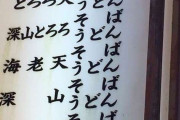 とろろ天 そば うどん
深山とろろ そば うどん
海老天 そば うどん
深山 そば うどん